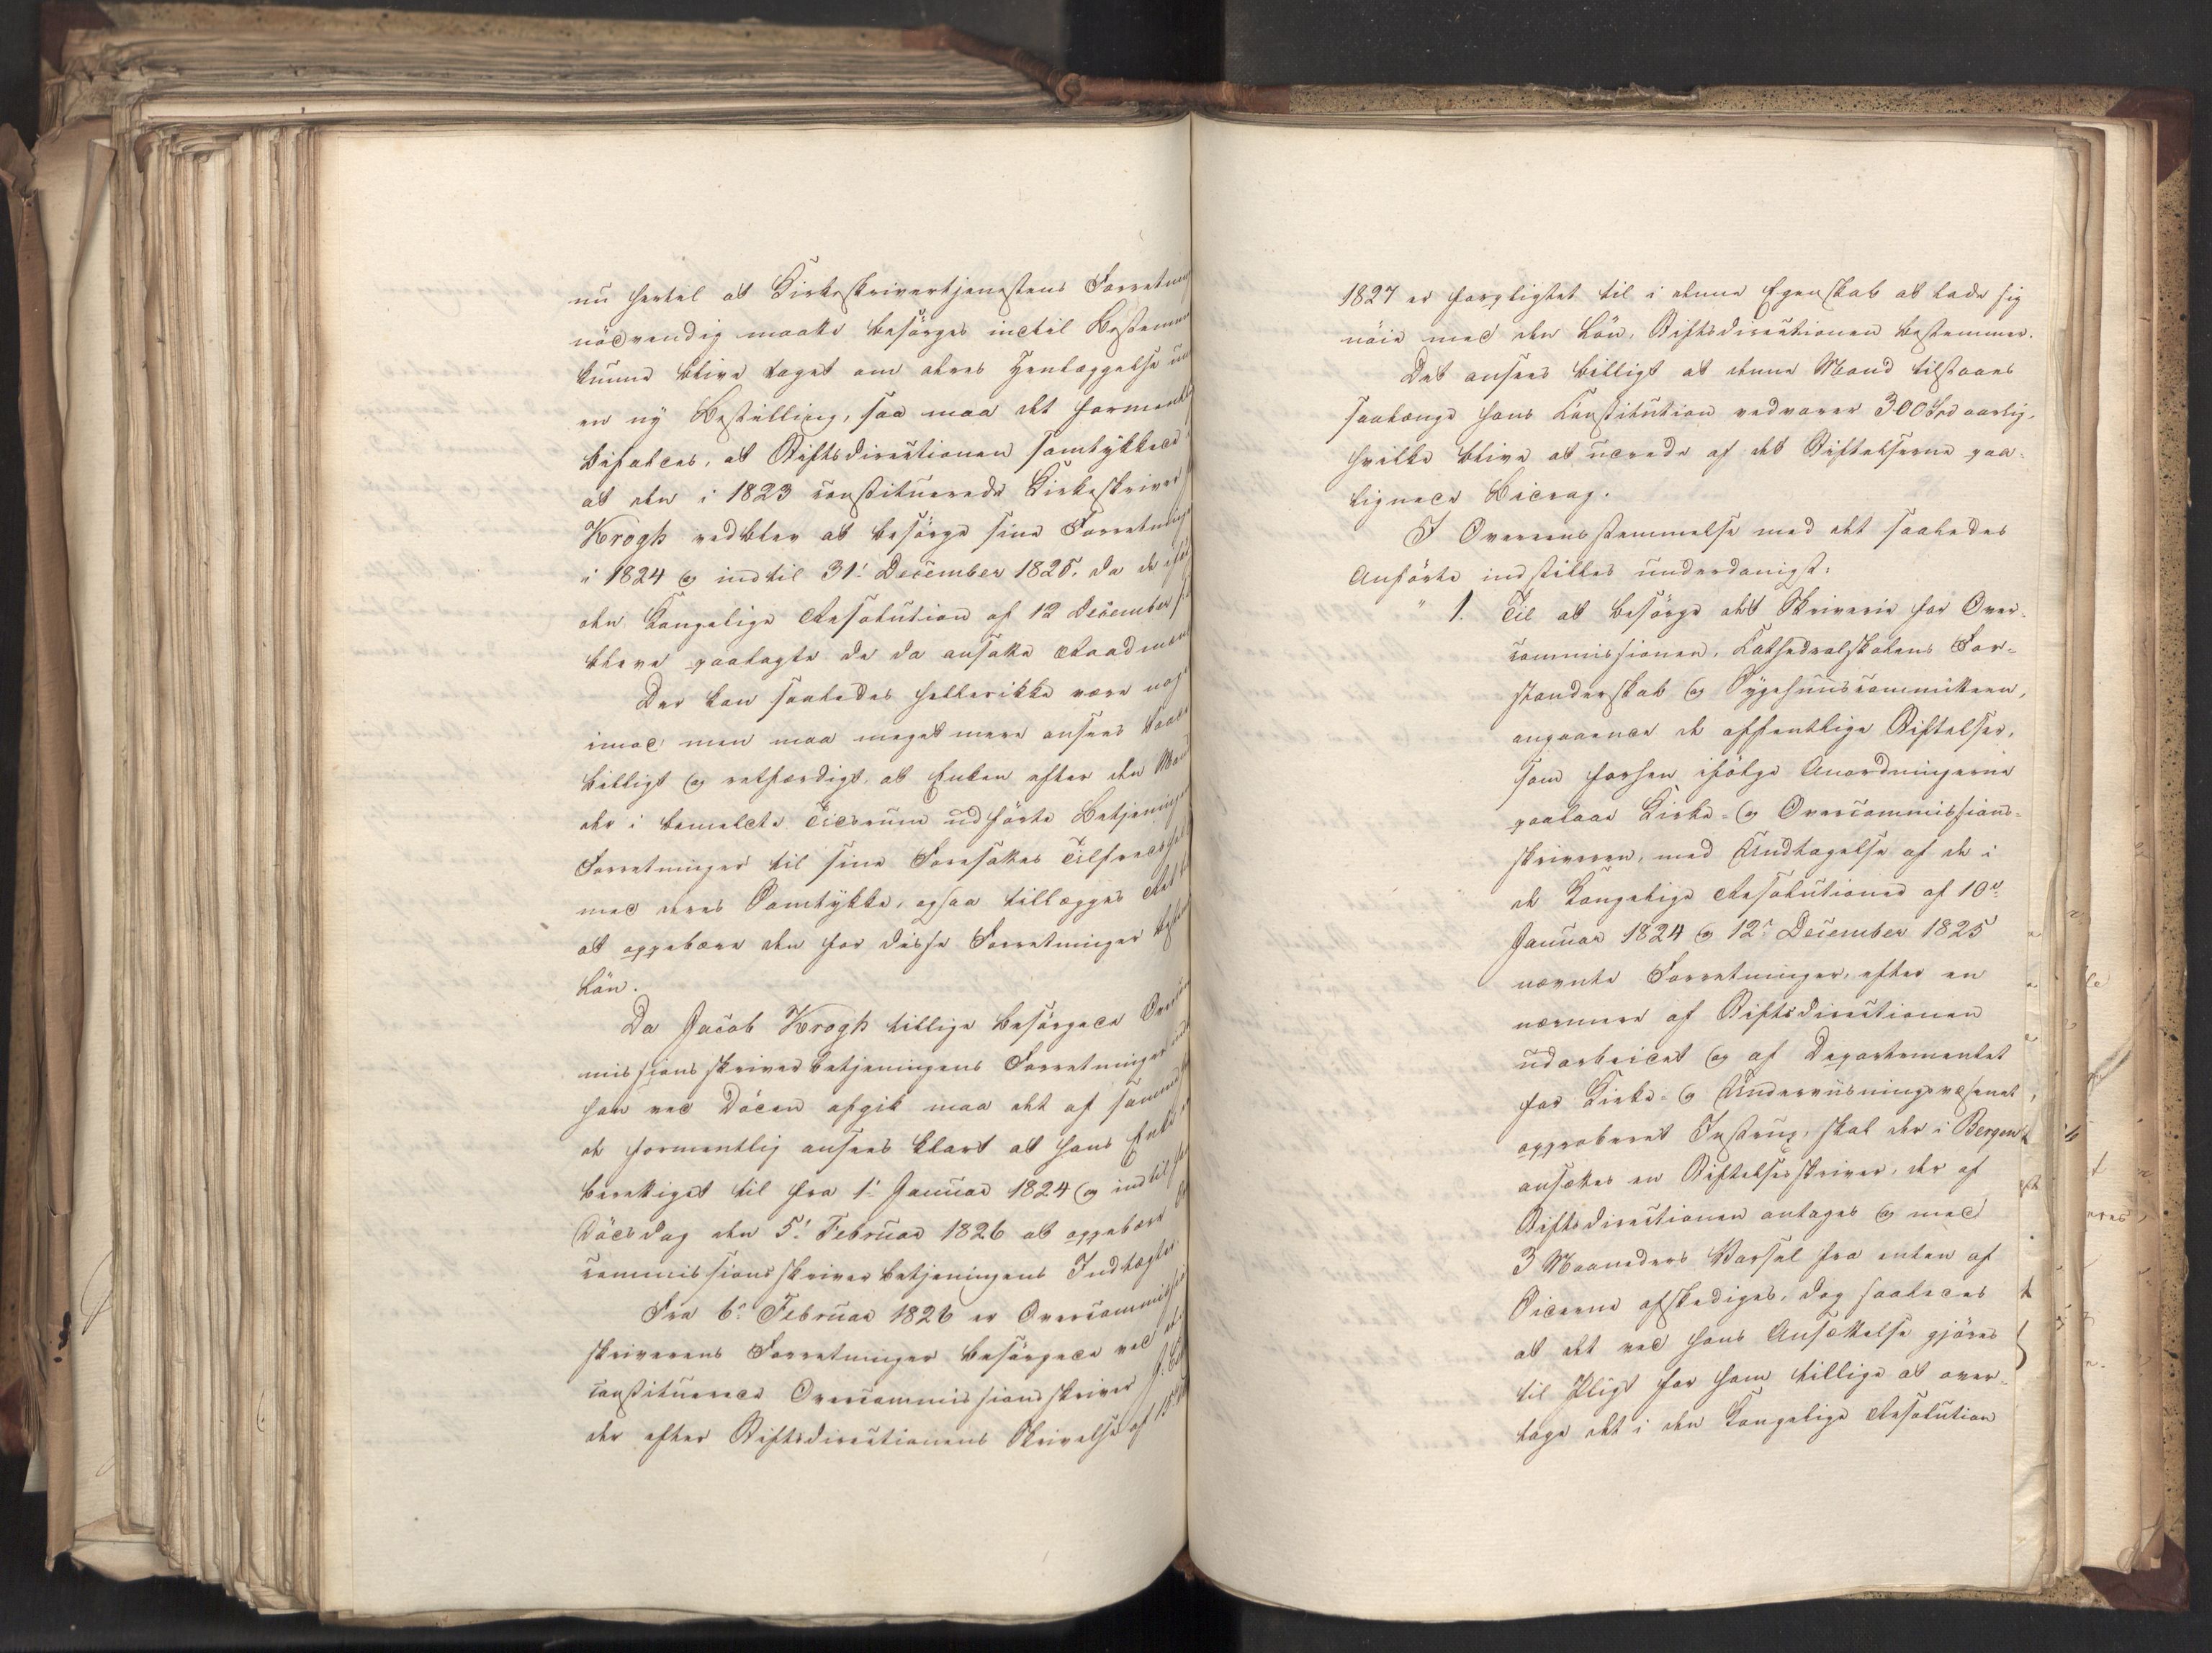 nu hertil at Kirkeskrivertjenestens Forretnin
nödvendig maatte besörges indtil Bestemme
kunne blive taget om deres Henlæggelse un
en ny Bestilling, saa maa det formentl
bifaldes, at Stiftsdirectionen samtykkede
at den i 1823 constituerede Kirkeskriver
Krogh vedblev at besörge sine Forretninge
i 1824 og indtil 31' December 1825, da de efter
den Kongelige Resolution af 12 December
bleve paalagte de da ansatte Raadmænd
Der kan saaledes hellerikke være noget
imod men maa meget mere ansees
billigt og retfærdigt, at Enken efter den Mand
der i bemeldte Tidsrum udförte Betjeninge
Forretninger til sine Foresattes Tilfredshed
med deres Samtykke, ogsaa tillægges Ret
at oppebære den for disse Forretninger
Lön.
Da Jacob Krogh tillige besörgede Overcom
missionsskriverbetjeningens Forretninger indtil
han ved Döden afgik maa det af samme
de formentlig ansees klart at hans Enke
berettiget til fra 1' Januar 1824 og indtil
Dödsdag den 5' Februar 1826 at oppebære
commissionsskriverbetjeningens Indtægter
Fra 6' Februar 1826 er Overcommissions
skriverens Forretninger besörgede ved
constituerede Overcommissionsskriver
der efter Stiftsdirectionens Skrivelse af 15
1827 er forpligtet til i denne Egenskab at lade sig
nöie med den Lön, Stiftsdirectionen bestemmer.
Det ansees billigt at denne Mand tilstaaes
saalænge hans Constitution vedvarer 300 Spd aarlig,
hvilke blive at udrede af det Stiftelserne paa-
lignede Bidrag.
I Overeensstemmelse med det saaledes
Anförte indstilles underdanigst:
" 1. Til at besörge det Skriverie for Over-
commissionen, Kathedralskolens For-
standerskab og Sygehuuscommitteen,
angaaende de offentlige Stiftelser,
som forhen ifölge Anordningerne
paalaae Kirke- og Overcommissions-
skriveren, med Undtagelse af de i
de Kongelige Resolutioner af 10de
Januar 1824 og 12' December 1825
nævnte Forretninger, efter en
nærmere af Stiftsdirectionen
udarbeidet og af Departementet
for Kirke- og Underviisningsvæsenet
approberet Instrux, skal der i Bergen
ansættes en Stiftelsesskriver, der af
Stiftsdirectionen antages og med
3 Maaneders Varsel fra enten af
Siderne afskediges, dog saaledes
at det ved hans Ansættelse gjöres
til Pligt for ham tillige at over-
tage det i den Kongelige Resolution